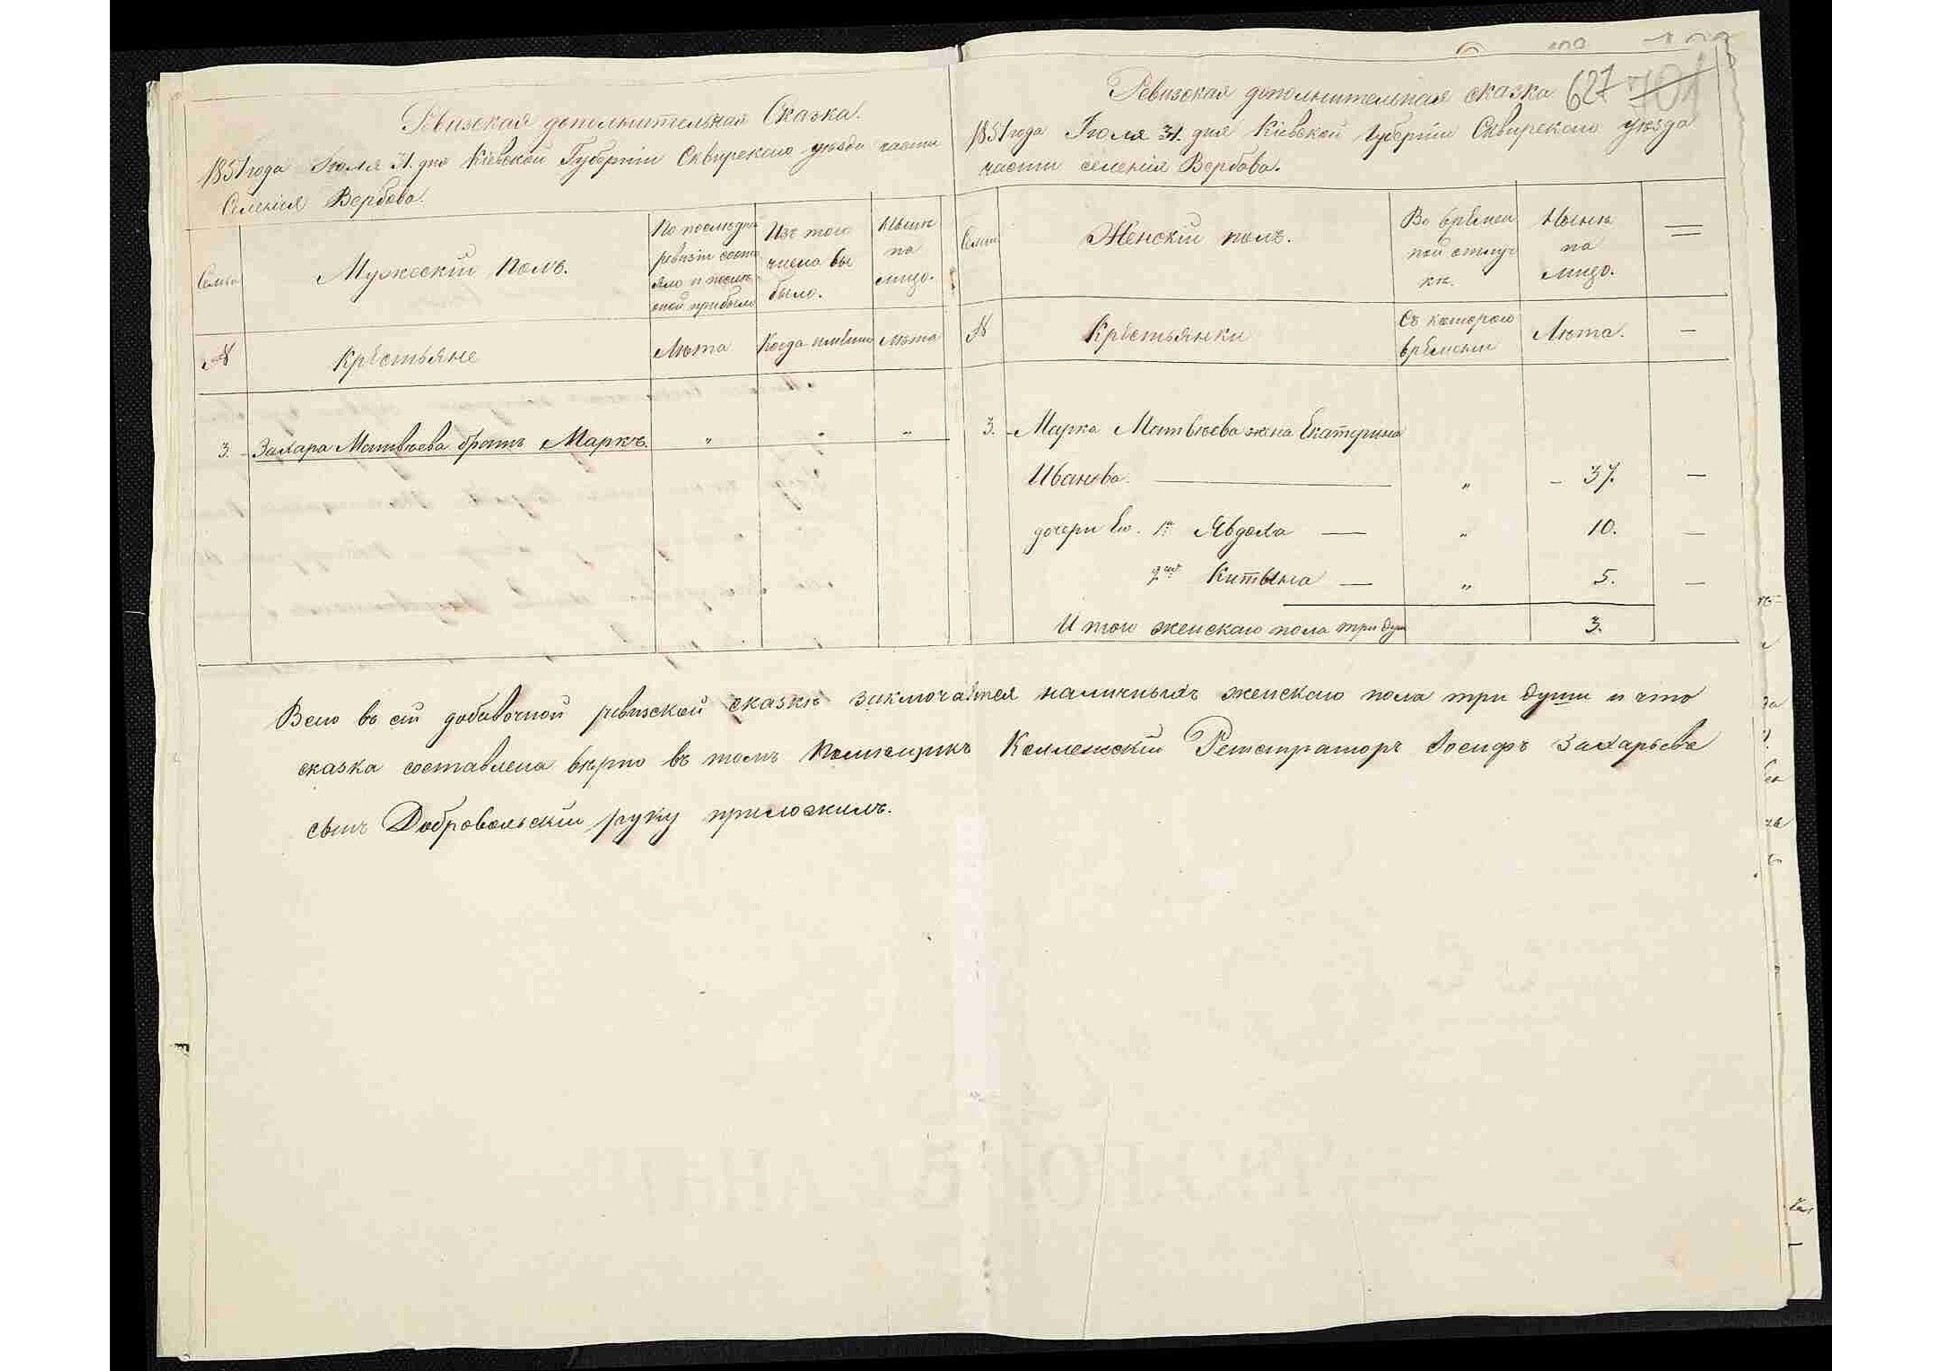 Ревизская дополнительная Сказка.
1851 года Іюля 31. дня Кіевской Губерніи Сквирскаго уѣзда части
Селенія Вербова.
Семьи
Мужескій полъ.
По послѣдней
ревизіи состо
яло и послѣ
оной прибыло
Изъ того
числа вы
было.
Нынѣ
на
лицо.
№
Крѣстьяне
Лѣта
Когда именно
Лѣта
3. Захара Матвѣева братъ Маркъ. " " "
627 701
Ревизская дополнительная сказка
1851 года Іюля 31. дня Кіевской Губерніи Сквирскаго уѣзда
части селенія Вербова.
Семьи
Женскій полъ.
Во времен
ной отлуч
кѣ.
Нынѣ
на
лицо.
№
Крѣстьянки
Съ котораго
времени
Лѣта.
3. Марка Матвѣева жена Екатерина
Иванова. " 37.
дочери Ею. 1я Явдоха " 10.
2я " 5.
И того женскаго пола три души 3.
Всего въ сей добавочной ревизской сказкѣ заключается наличныхъ женскаго пола три души и что
сказка составлена вѣрно въ томъ Помѣщикъ Коллежскій Регистраторъ Іосифъ Захарьевъ
сынъ Добровольскій руку приложилъ.